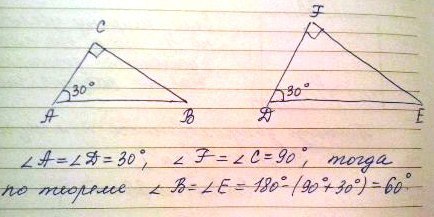 C
F
30°
30°
A
B
D
E
∠A=∠D=30°, ∠F=∠C=90°, тогда
по теореме ∠B=∠E=180°-(90°+30°)=60°